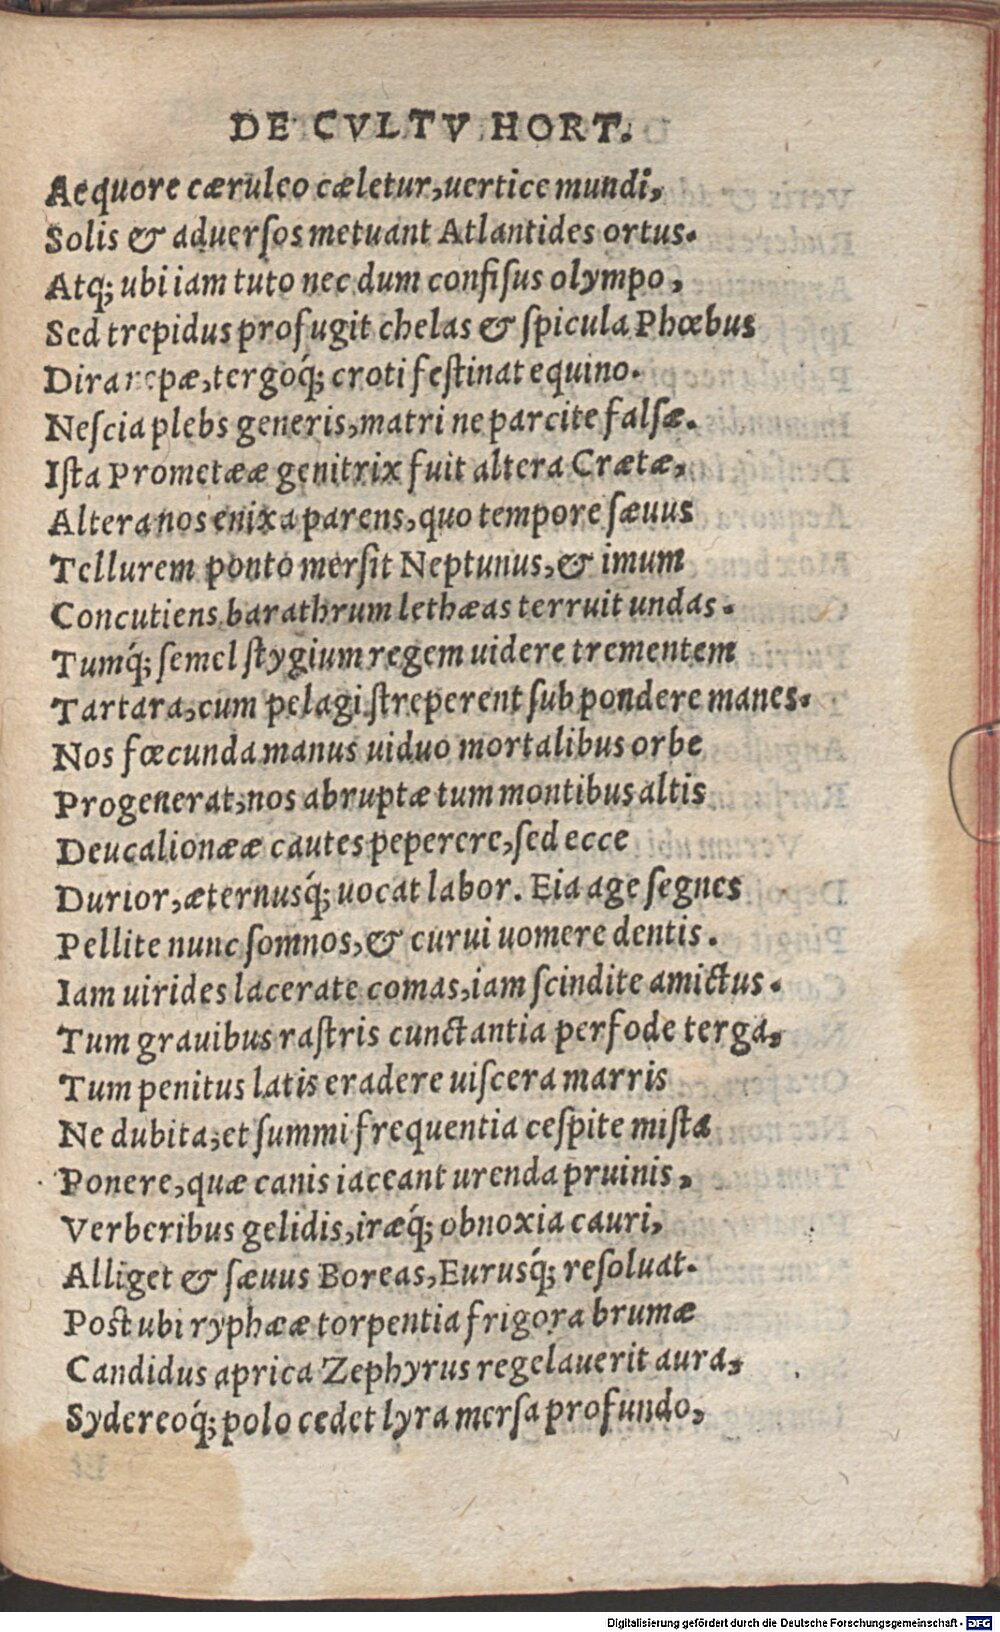 DE CVLTV HORT.
Aequore cæruleo cæletur, uertice mundi,
Solis & aduerſos metuant Atlantides ortus.
Atq; ubi iam tuto nec dum confiſus olympo,
Sed trepidus profugit chelas & ſpicula Phœbus
Dira nepæ, tergoq́; croti feſtinat equino.
Neſcia plebs generis, matri ne parcite falſæ.
Iſta Prometææ genitrix fuit altera Crætæ,
Altera nos enixa parens, quo tempore ſæuus
Tellurem ponto merſit Neptunus, & imum
Concutiens barathrum lethæas terruit undas.
Tumq́; ſemel ſtygium regem uidere trementem
Tartara, cum pelagi ſtreperent ſub pondere manes.
Nos fœcunda manus uiduo mortalibus orbe
Progenerat, nos abruptæ tum montibus altis
Deucalionææ cautes peperere, ſed ecce
Durior, æternusq́; uocat labor. Eia age ſegnes
Pellite nunc ſomnos, & curui uomere dentis.
Iam uirides lacerate comas, iam ſcindite amictus.
Tum grauibus raſtris cunctantia perfode terga,
Tum penitus latis eradere uiſcera marris
Ne dubita, et ſummi frequentia ceſpite miſta
Ponere, quæ canis iaceant urenda pruinis,
Verberibus gelidis, iræq́; obnoxia cauri,
Alliget & ſæuus Boreas, Eurusq́; reſoluat.
Post ubi ryphææ torpentia frigora brumæ
Candidus aprica Zephyrus regelauerit aura,
Sydereoq́; polo cedet lyra merſa profundo,
Digitalisierung gefördert durch die Deutsche Forschungsgemeinschaft - DFG